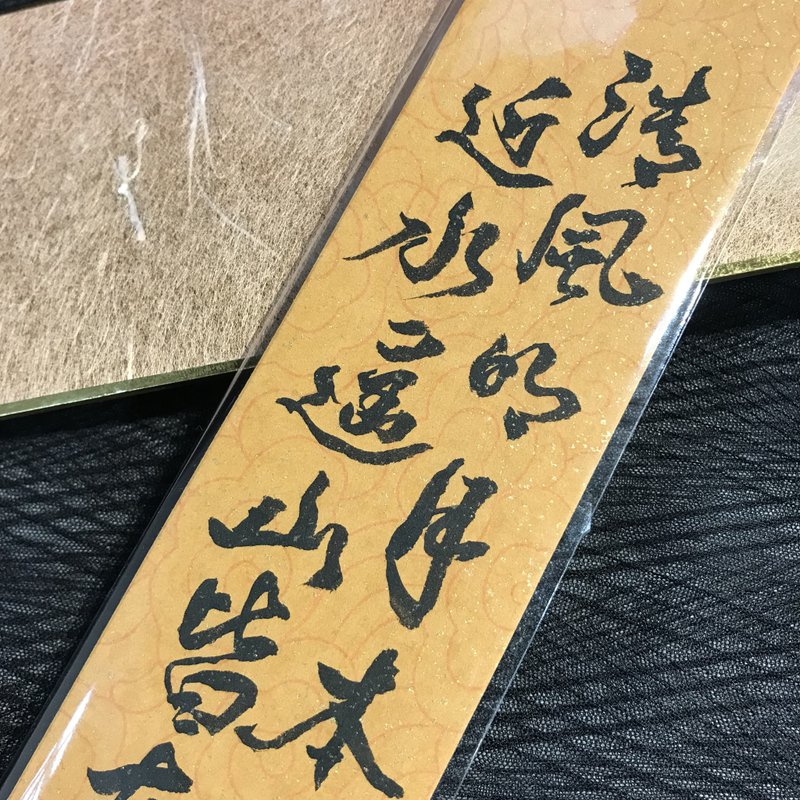 清風明月本
近水遠山皆有